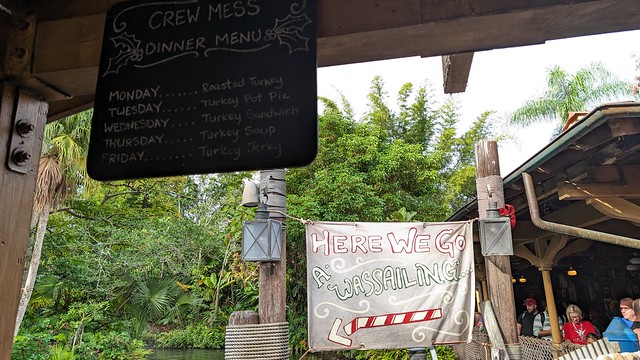 CREW MESS
DINNER MENU
MONDAY....... Roasted Turkey
TUESDAY...... Turkey Pot Pie
WEDNESDAY.... Turkey Sandwich
THURSDAY..... Turkey Soup
FRIDAY....... Turkey Jerky
HERE WE GO
A' WASSAILING!...